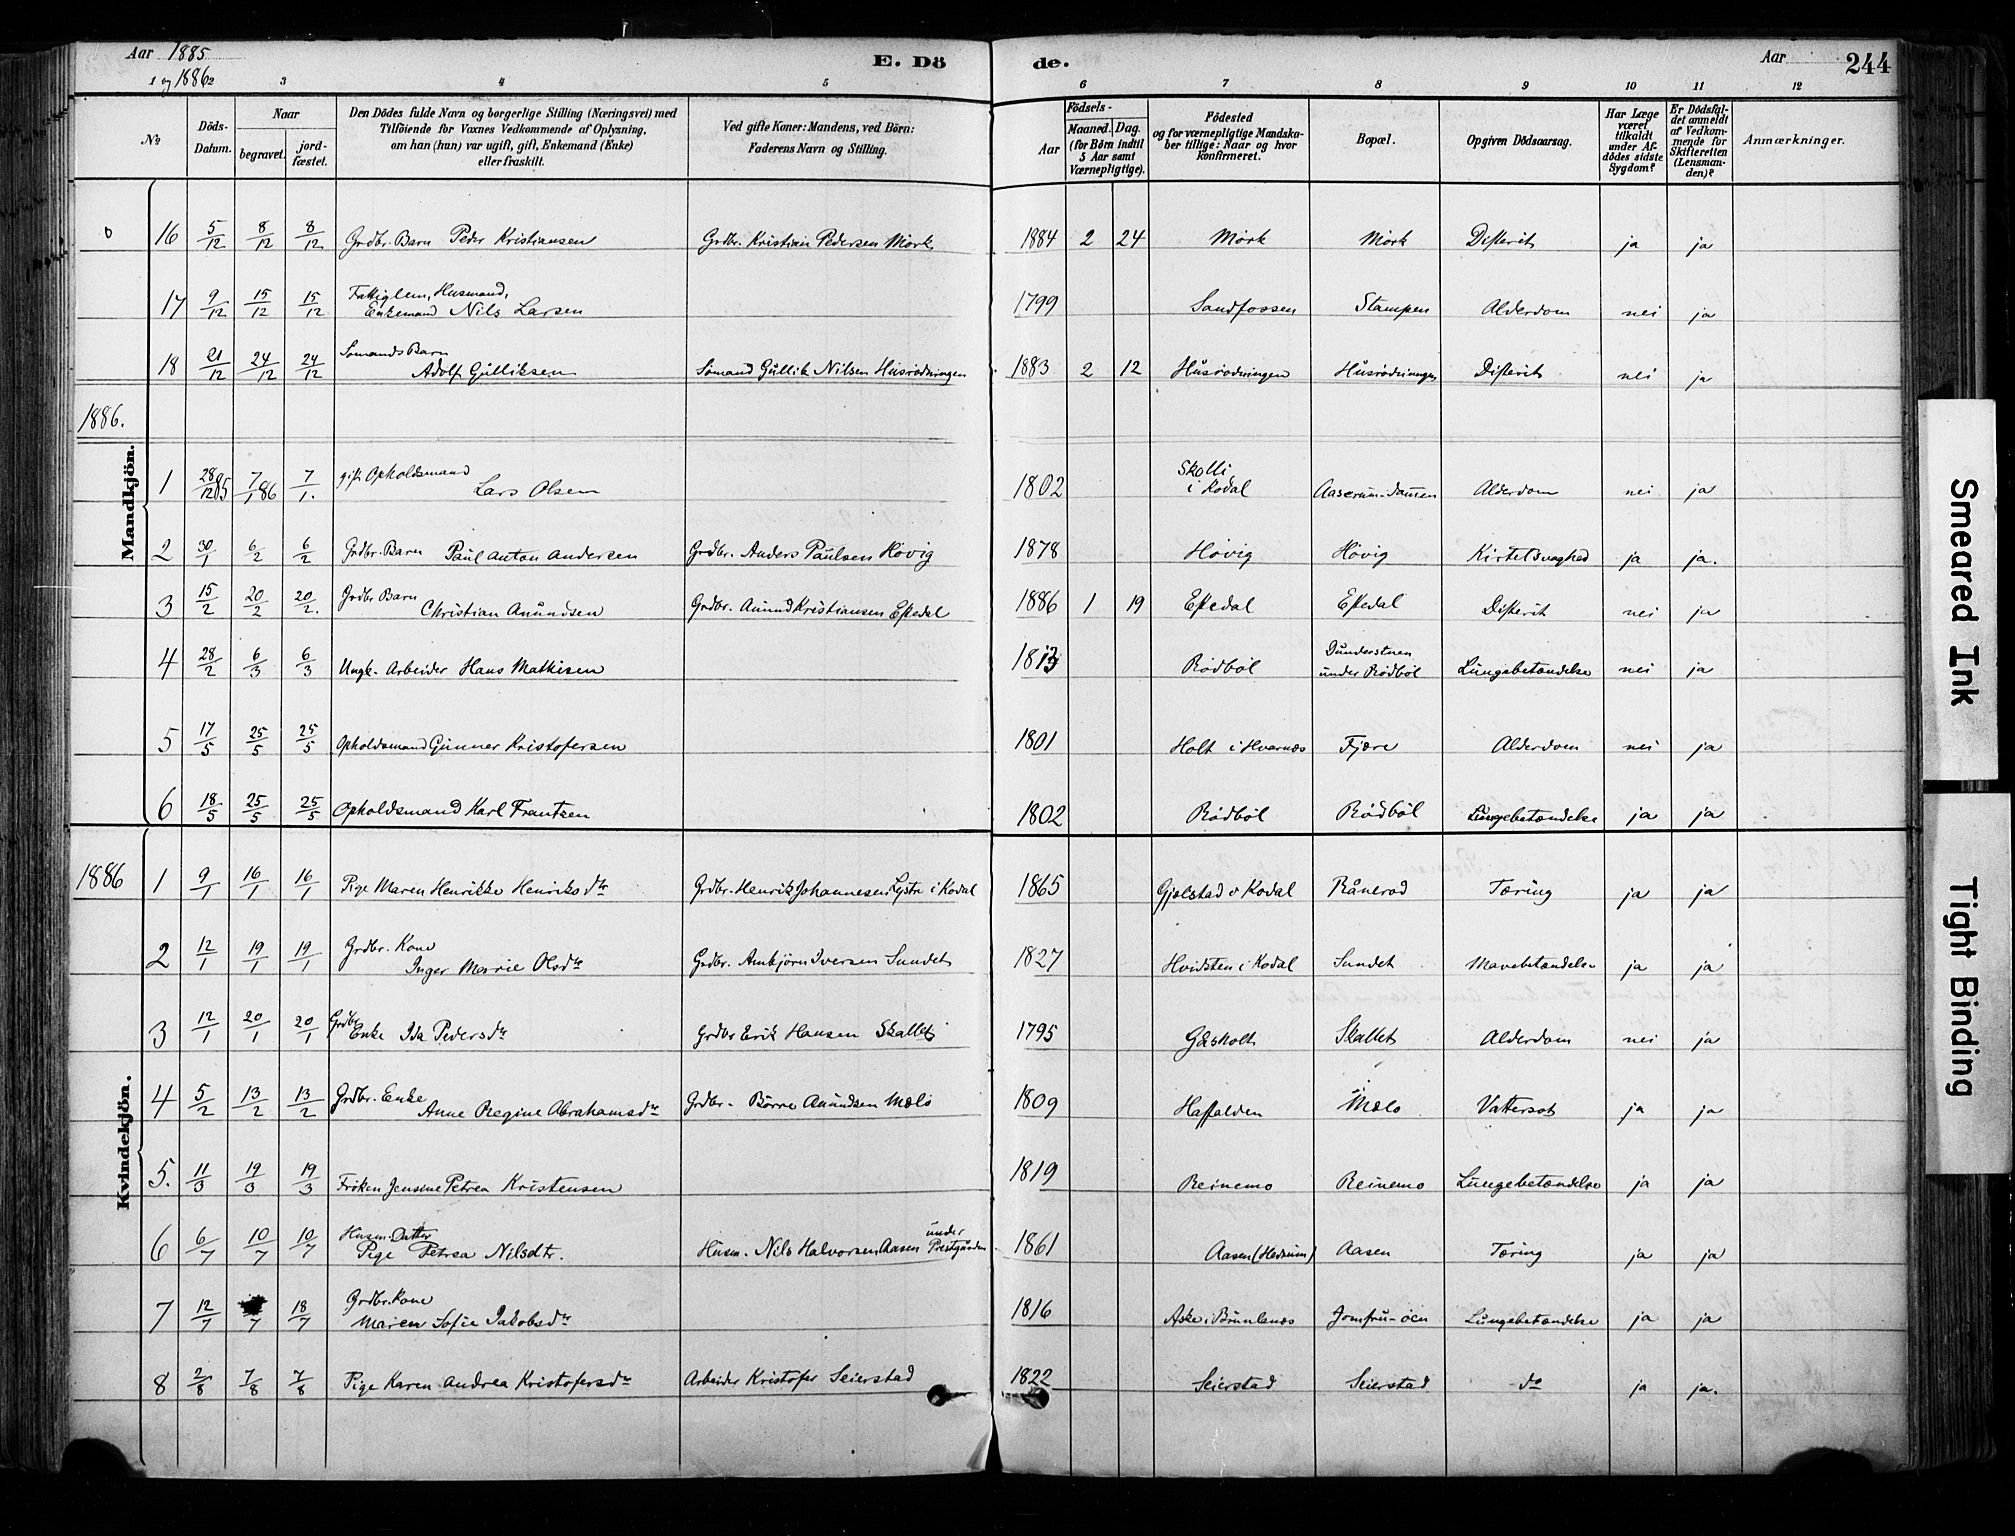 Aar 1885 og 1886
E. Dö de.
Aar 244
1 2 3 4 5 6 7 8 9 10 11 12
No.
Döds-Datum.
Naar
begravet.
jord-fæstet.
Den Dödes fulde Navn og borgerlige Stilling (Næringsvei) med
Tilföiende for Voxnes Vedkommende af Oplysning,
om han (hun) var ugift, gift, Enkemand (Enke)
eller fraskilt.
Ved gifte Koner: Mandens, ved Börn:
Faderens Navn og Stilling.
Födsels-
Aar
Maaned. Dag.
(for Börn indtil
5 Aar samt
Værnepligtige).
Födested
og for værnepligtige Mandska-
ber tillige: Naar og hvor
konfirmeret.
Bopæl.
Opgiven Dödsaarsag.
Har Læge
været
tilkaldt
under Af-
dödes sidste
Sygdom?
Er Dödsfal-
det anmeldt
af Vedkom-
mende for
Skifteretten
(Lensman-
den)?
Anmærkninger.
16 5/12 8/12 8/12 Grdbr. Barn Peder Kristiansen Grdbr. Kristian Pedersen Mørk 1884 2 24 Mørk Mørk Difterit ja ja
17 9/12 15/12 15/12 Fattiglem, Husmand,
Enkemand Nils Larsen 1799 Sandfossen Stampen Alderdom nei ja
18 21/12 24/12 24/12 Sømands Barn
Adolf Gulliksen Sømand Gullik Nilsen Husrødningen 1883 2 12 Husrødningen Husrødningen Difterit nei ja
1886.
Mandkjön.
1 28/12 85 7/1 86 7/1. gift Opholdsmand
Lars Olsen 1802 Skolli
i Kodal Aaserum-dammen Alderdom nei ja
2 30/1 6/2 6/2 Grdbr. Barn Paul Anton Andersen Grdbr. Anders Paulsen Høvig 1878 Høvig Høvig Kirtelsvaghed ja ja.
3 15/2 20/2 20/2. Grdbr Barn
Christian Amundsen Grdbr. Amund Kristiansen Eftedal 1886 1 19 Eftedal Eftedal Difterit nei ja
4 28/2 6/3 6/3 Ungk. Arbeider Hans Mathisen Rødbøl
under Rødbøl Lungebetændelse nei ja
5 17/5 25/5 25/5 Opholdsmand Gunner Kristofersen 1801 Holt i Hvarnæs Fjære Alderdom nei ja
6 18/5 25/5 25/5 Opholdsmand Karl Frantzen 1802 Rødbøl Rødbøl Lungebetændelse ja ja
1886
Kvindekjön.
1 9/1 16/1 16/1 Pige Maren Henrikke Henriksdtr Grdbr. Henrik Johannesen Lystr i Kodal 1865 Gjelstad i Kodal Rånerød Tæring ja ja
2 12/1 19/1 19/1 Grdbr. Kone
Inger Marie Olsdtr Grdbr. Arnbjørn Iversen Sundet 1827 Hvidsten i Kodal Sundet Mavebetændelse ja ja
3 12/1 20/1 20/1 Grdbr
Enke Ida Pedersdtr Grdbr Erik Hansen Skallet 1795 Gåsholt Skallet Alderdom nei ja
4 5/2 13/2 13/2 Grdbr. Enke
Anne Regine Abrahamsdtr Grdbr. Børre Amundsen Mælø 1809 Haffalden Mælø Vattersot ja ja
5. 11/3 19/3 19/3 Frøken Jensine Petrea Kristensen 1819 Reinemo Reinemo Lungebetændelse ja ja
6 6/7 10/7 10/7 Husm. Datter
Pige Petrea Nilsdtr. Husm. Nils Halvorsen Aasen under Prestgården 1861 Aasen (Hedrum) Aasen Tæring ja ja
7 12/7 /7 18/7 Grdbr. Kone
Maren Sofie Jakobsdtr 1816 Aske i Brunlanæs Jomfru-øen Lungebetændelse ja ja
8 2/8 7/8 7/8 Pige Karen Andrea Kristofersdtr Arbeider Kristofer Seierstad 1822 Seierstad Seierstad do ja ja.
Smeared Ink
Tight Binding